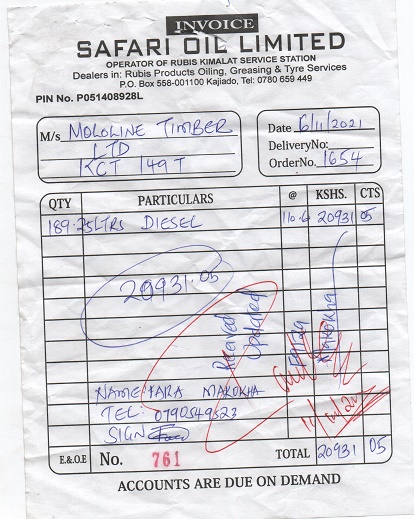 INVOICE
SAFARI OIL LIMITED
OPERATOR OF RUBIS KIMALAT SERVICE STATION
Dealers in: Rubis Products Oiling, Greasing & Tyre Services
P.O. Box 558-001100 Kajiado, Tel: 0780 659 449
PIN No. P051408928L
M/s MOLOLINE TIMBER
LTD
KCT 149T
Date 6/11/2021
DeliveryNo:
OrderNo. 1654
QTY PARTICULARS @ KSHS. CTS
189.25LTRS DIESEL 110.6 20931 05
20931.05
Received
Updated
Makokha
NAME: FARA MAKOKHA
TEL: 0790549523
SIGN
E.&O.E No. 761 TOTAL 20931 05
ACCOUNTS ARE DUE ON DEMAND